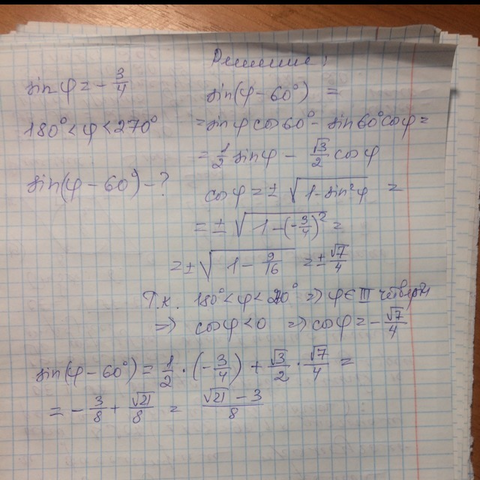 sin φ = - 3/4
180° < φ < 270°
sin(φ - 60°) - ?
Решение:
sin(φ - 60°) =
= sin φ cos 60° - sin 60° cos φ =
= 1/2 sin φ - √3/2 cos φ
cos φ = ± √(1 - sin² φ) =
= ± √(1 - (-3/4)²) =
= ± √(1 - 9/16) = ± √7/4
Т.к. 180° < φ < 270° => φ ∈ III четверти
=> cos φ < 0 => cos φ = - √7/4
sin(φ - 60°) = 1/2 · (-3/4) + √3/2 · √7/4 =
= - 3/8 + √21/8 = (√21 - 3)/8